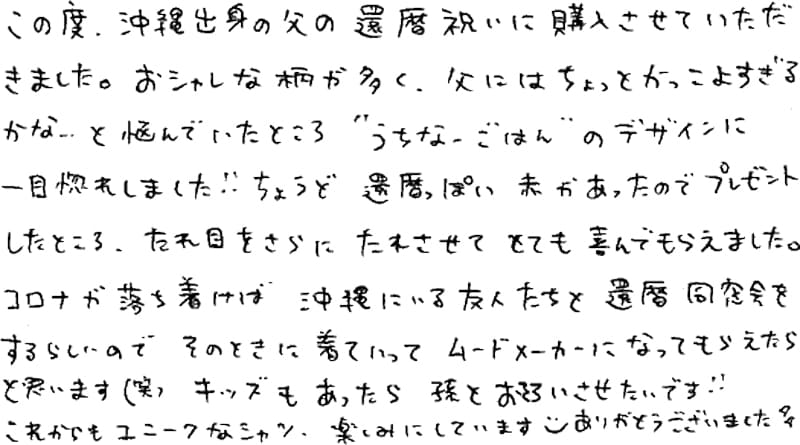 この度、沖縄出身の父の還暦祝いに購入させていただ
きました。おシャレな柄が多く、父にはちょっとかっこよすぎる
かな… と悩んでいたところ "うちなーごはん" のデザインに
一目惚れしました!! ちょうど 還暦っぽい 赤があったので プレゼント
したところ、たれ目をさらに たれさせて とても 喜んでもらえました。
コロナが落ち着けば 沖縄にいる友人たちと 還暦同窓会を
するらしいので そのときに着ていって ムードメーカーになってもらえたら
と思います(笑) キッズもあったら 孫とお揃いさせたいです!!
これからもユニークなシャツ、楽しみにしています ありがとうございました